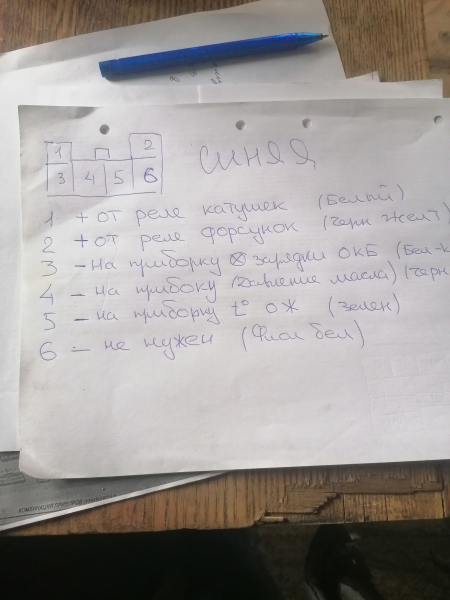 1 2
3 4 5 6
СИНЯЯ
1 + от реле катушек (Белый)
2 + от реле форсунок (Черн Желт)
3 - на приборку ⊗ зарядки ОКБ (Бел-К
4 - на прибоку (Давление масла) (Черн
5 - на приборку t° ож (Зелен)
6 - не нужен (Фиол бел)